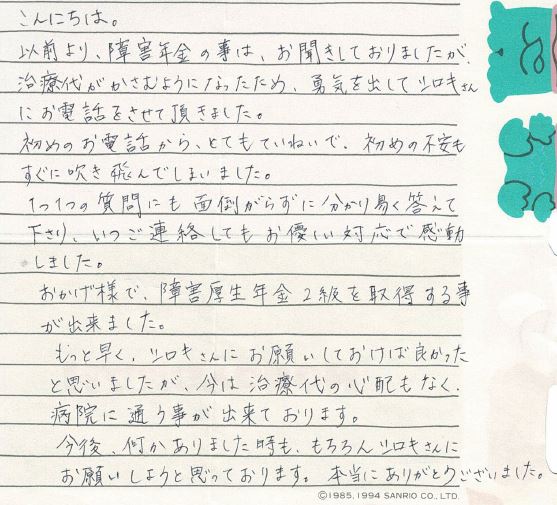 こんにちは。
以前より、障害年金の事は、お聞きしておりましたが、
治療代がかさむようになったため、勇気を出してシロキさん
にお電話をさせて頂きました。
初めのお電話から、とてもていねいで、初めの不安も
すぐに吹き飛んでしまいました。
1つ1つの質問にも面倒がらずに分かり易く答えて
下さり、いつご連絡してもお優しい対応で感動
しました。
おかげ様で、障害厚生年金2級を取得する事
が出来ました。
もっと早く、シロキさんにお願いしておけば良かった
と思いましたが、今は治療代の心配もなく、
病院に通う事が出来ております。
今後、何かありました時も、もちろんシロキさんに
お願いしようと思っております。本当にありがとうございました。
©1985,1994 SANRIO CO., LTD.